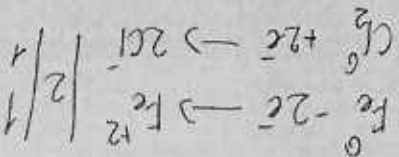 Fe⁰ -2ē → Fe⁺² | 2 | 1
Cl₂⁰ +2ē → 2Cl⁻ | 2 | 1